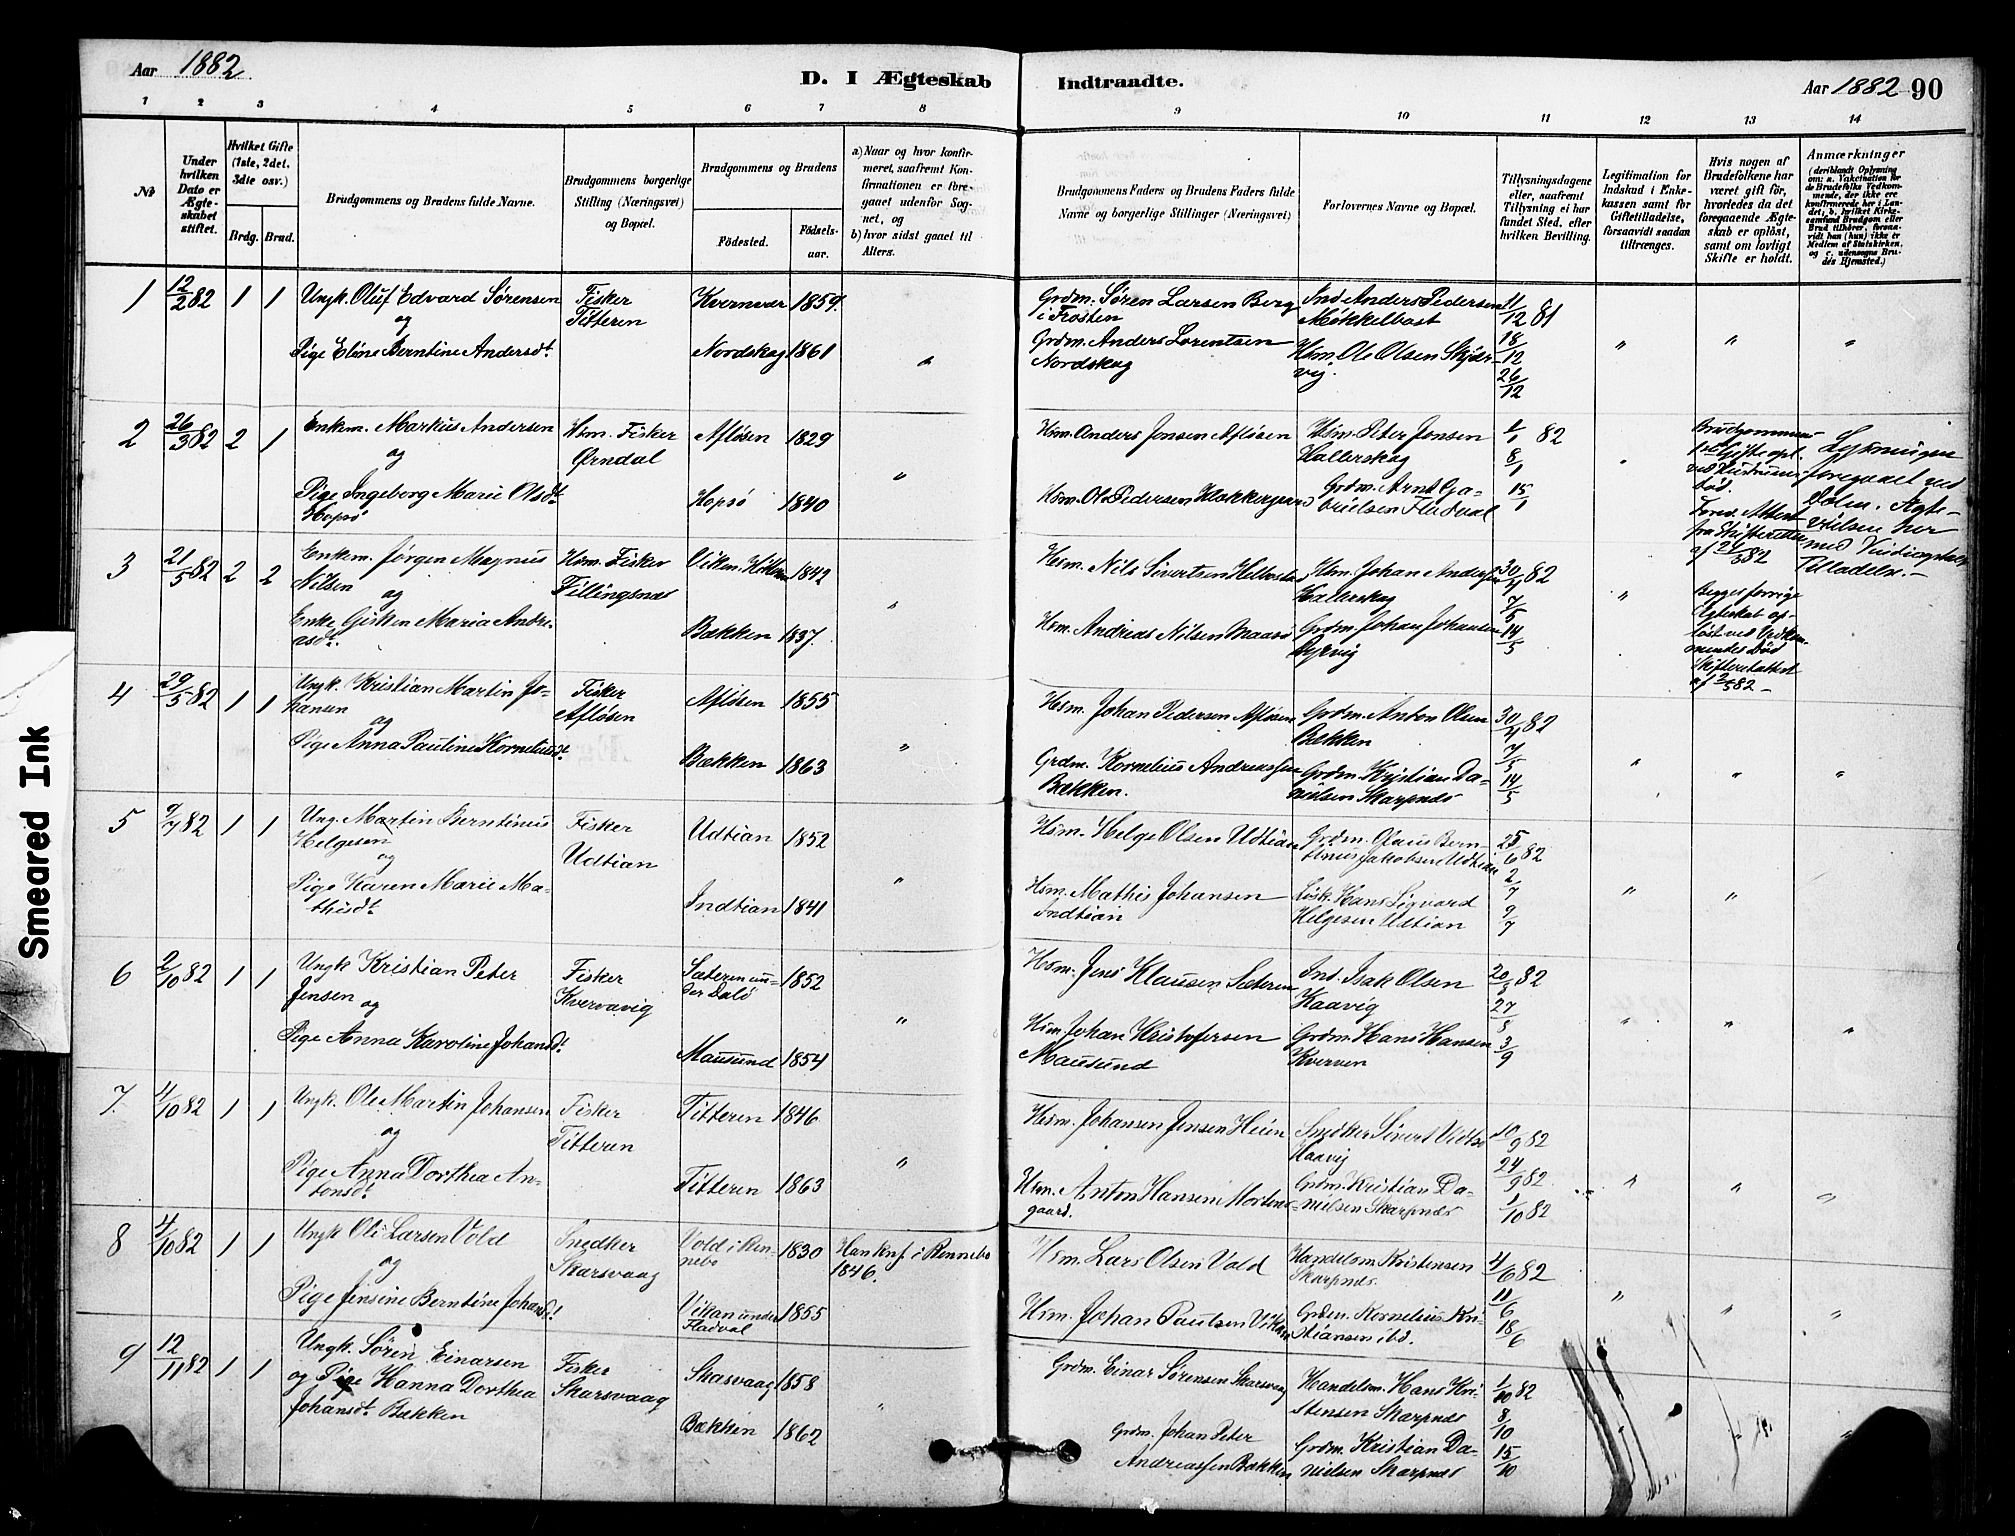 Smeared Ink
Aar 1882.
D. I Ægteskab
Indtraadte.
Aar 1882 90
1 2 3 4 5 6 7 8
9 10 11 12 13 14
No
Under hvilken Dato er Ægteskabet stiftet.
Hvilket Gifte (1ste, 2det, 3die osv.)
Brdg. Brud.
Brudgommens og Brudens fulde Navne.
Brudgommens borgerlige Stilling (Næringsvei) og Bopæl.
Brudgommens og Brudens
Fødested. Fødselsaar.
a) Naar og hvor konfirmeret, saafremt Konfirmationen er foregaaet udenfor Sognet, og
b) hvor sidst gaaet til Alters.
Brudgommens Faders og Brudens Faders fulde Navne og borgerlige Stillinger (Næringsvei)
Forlovernes Navne og Bopæl.
Tillysningsdagene eller, saafremt Tillysning ei har fundet Sted, efter hvilken Bevilling.
Legitimation for Indskud i Enkekassen samt for Giftetilladelse, forsaavidt saadan tiltrænges.
Hvis nogen af Brudefolkene har været gift før, hvorledes da det foregaaende Ægteskab er opløst, samt om lovligt Skifte er holdt.
Anmærkninger
1 12/2 82 1 1 Ungk. Oluf Edvard Sørensen
og
Pige Eline Berntine Andersdt.
Fisker
Titteren
Kvernvær 1859.
Nordskag 1861 "
Grdm. Søren Larsen Berg
i Frosten
Grdm. Anders Lorentsen
Nordskag
Ind. Anders Pedersen
Møkkelbost
Hsm. Ole Olsen Skjær-
vig.
11/12 81
18/12
26/12
" " "
2 26/3 82 2 1 Enkem. Markus Andersen
og
Pige Ingeborg Marie Olsdt.
Hopsø
Hsm. Fisker
Ørndal
Afløsen 1829
Hopsø 1840
"
Hsm. Anders Jensen Afløsen
Hsm. Ole Pedersen Klokkergaard
Hsm. Peter Jensen
Hallerskag
Grdm. Arnt Ga-
brielsen Fladval
1/1 82
8/1
15/1
"
Brudgommens
1ste Gifte opl.
ved Hustruens
død.
Lysningen
foregaaet ved
3 21/5 82 2 2 Enkem. Jørgen Magnus
Nilsen
og
Enke Gisken Maria Andre-
asdt.
Hsm. Fisker
Fillingsnæs
Viken 1842
Bækken 1837.
"
Hsm. Nils Sivertsen
Hsm. Andreas Nilsen Maasø
Hsm. Johan Andersen
Hallerskag
Grdm. Johan Johansen
30/4 82
7/5
14/5
"
Begges forrige
Ægteskab op-
løst ved Vedkom-
mendes Død
4 29/5 82 1 1 Ungk. Kristian Martin Jo-
hansen
og
Pige Anna Pauline Korneliusdt.
Fisker
Afløsen
Afløsen 1855
Bækken 1863
"
Hsm. Johan Pedersen Afløsen
Grdm. Kornelius Andreassen
Bækken.
Grdm. Anton Olsen
Bækken
Grdm. Kristian Da-
nielsen Skarpnes
30/4 82
7/5
14/5
" " "
5 9/7 82 1 1 Ung. Martin Berntinus
Helgesen
og
Pige Karen Marie Ma-
thisdt.
Fisker
Udtian
Udtian 1852
Indtian 1841
"
Hsm. Helge Olsen Udtian
Hsm. Mathis Johansen
Indtian
Grdm. Olaus Bern-
tinus Jakobsen Udtian
Løsk. Hans Sigvard
Helgesen Udtian
25/6 82
2/7
9/7
" "
6 2/10 82 1 1 Ungk Kristian Peter
Jensen og
Pige Anna Karoline Johansdt.
Fisker
Kvervavig
Sæteren un-
der Dalø 1852
Mausund 1854
"
Hsm. Jens Klausen Sæteren
Hsm. Johan Kristofersen
Mausund
Ind. Isak Olsen
Kaavig
Grdm. Hans Hansen
Kverven
20/8 82
27/8
3/9
" " "
7. 4/10 82 1 1 Ungk. Ole Martin Johansen
og
Pige Anna Dorthea An-
tonsdt.
Fisker
Titteren
Titteren 1846
Titteren 1863
"
Hsm. Johansen Jensen Heien
Hsm. Anton Hansen Mortens-
gaard.
Snedker Sivert
Grdm. Kristian Da-
nielsen Skarpnes
10/9 82
24/9 82
1/10 82
" " "
8 4/10 82 1 1 Ungk Ole Larsen Vold
og
Pige Jensine Berntine Johansdt.
Snedker
Skarsvaag
Vold i Ren-
nebo 1830
Vikan under
Fladval 1855
Han Konf. i Rennebo
1846.
Hsm. Lars Olsen Vold
Hsm. Johan Paulsen Vikan
Handelsm Kristensen
Skarpnes
Grdm. Kornelius Kri-
stiansen ibd.
4/6 82
11/6
18/6
" " "
9 12/11 82 1 1 Ungk. Søren Einarsen
og Pige Hanna Dorthea
Johansdt. Bækken
Fisker
Skarsvaag
Skarsvaag 1858
Bækken 1862
"
Grdm. Einar Sørensen Skarsvaag
Grdm. Johan Peter
Andreassen Bækken
Handelsm. Hans Kri-
stensen Skarpnes
Grdm. Kristian Da-
nielsen Skarpnes
1/10 82
8/10
15/10
" " "